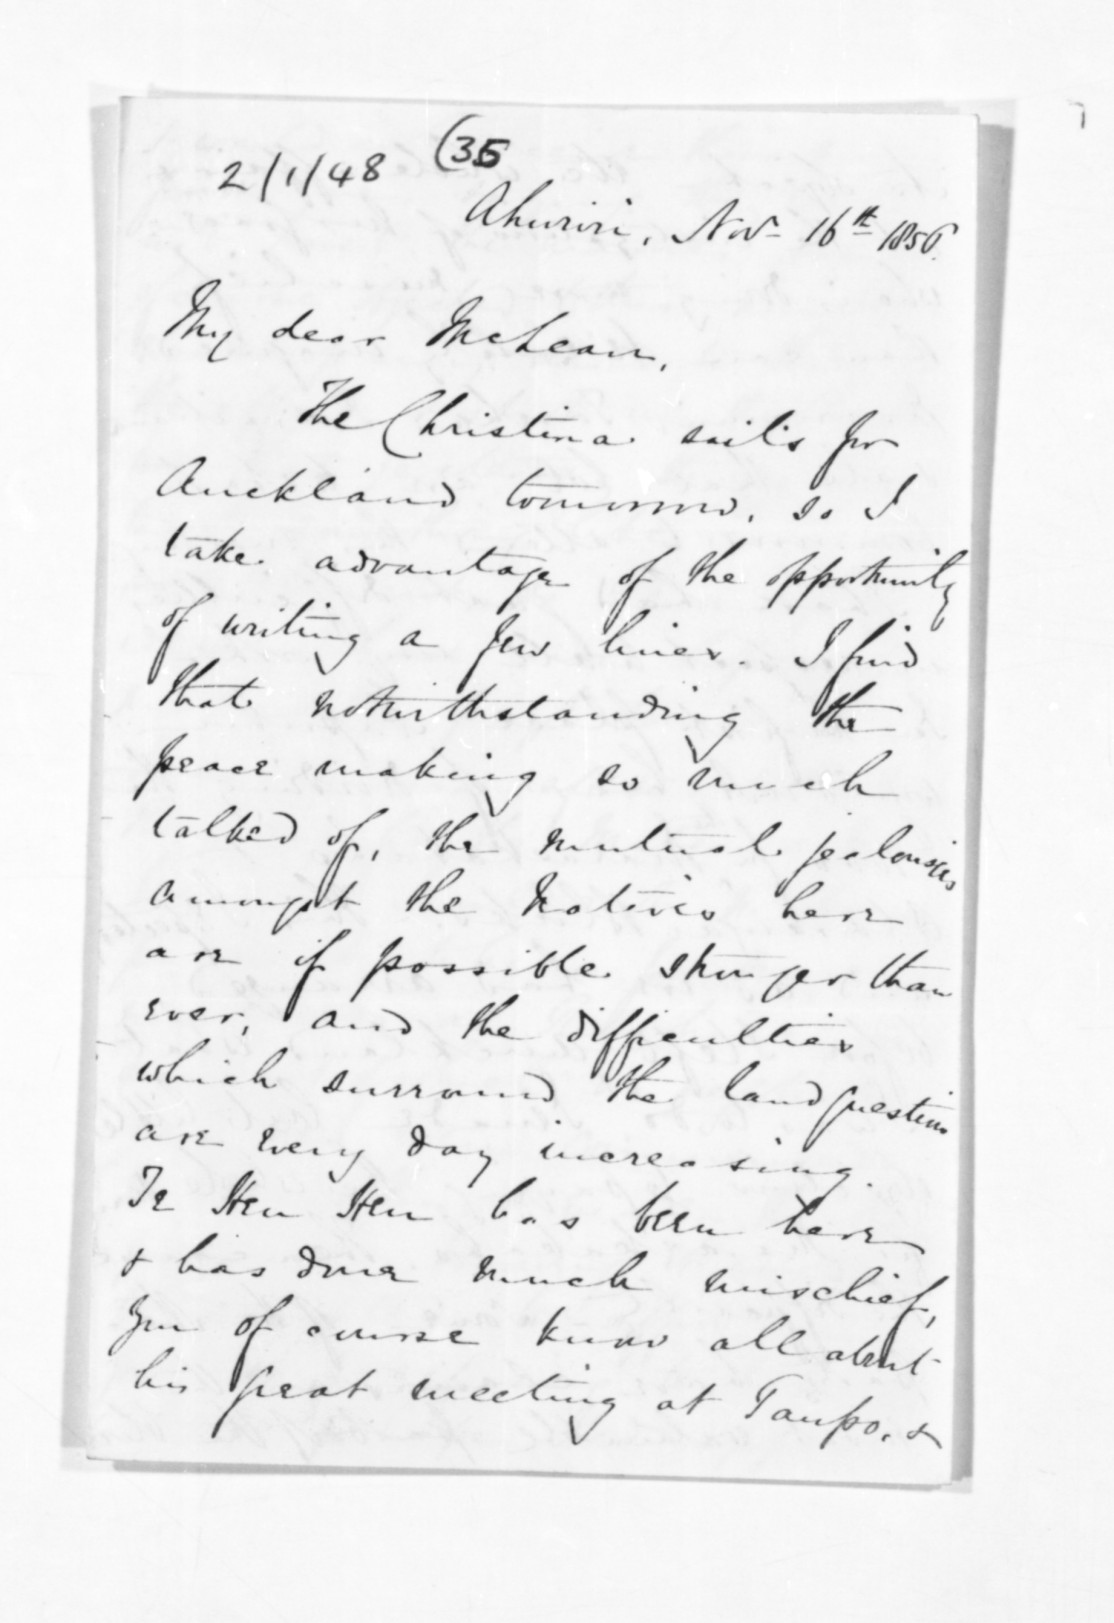 2/1/48 (35
Ahuriri, Nov 16th 1856.
My dear McLean,
The Christina sails for
Auckland tomorrow, so I
take advantage of the opportunity
of writing a few lines. I find
that notwithstanding the
peace making so much
talked of, the mutual jealousies
amongst the Natives here
are if possible stronger than
ever, and the difficulties
which surround the land question
are every day increasing.
Te Heu Heu has been here
& has done much mischief,
you of course know all about
his great meeting at Taupo, &